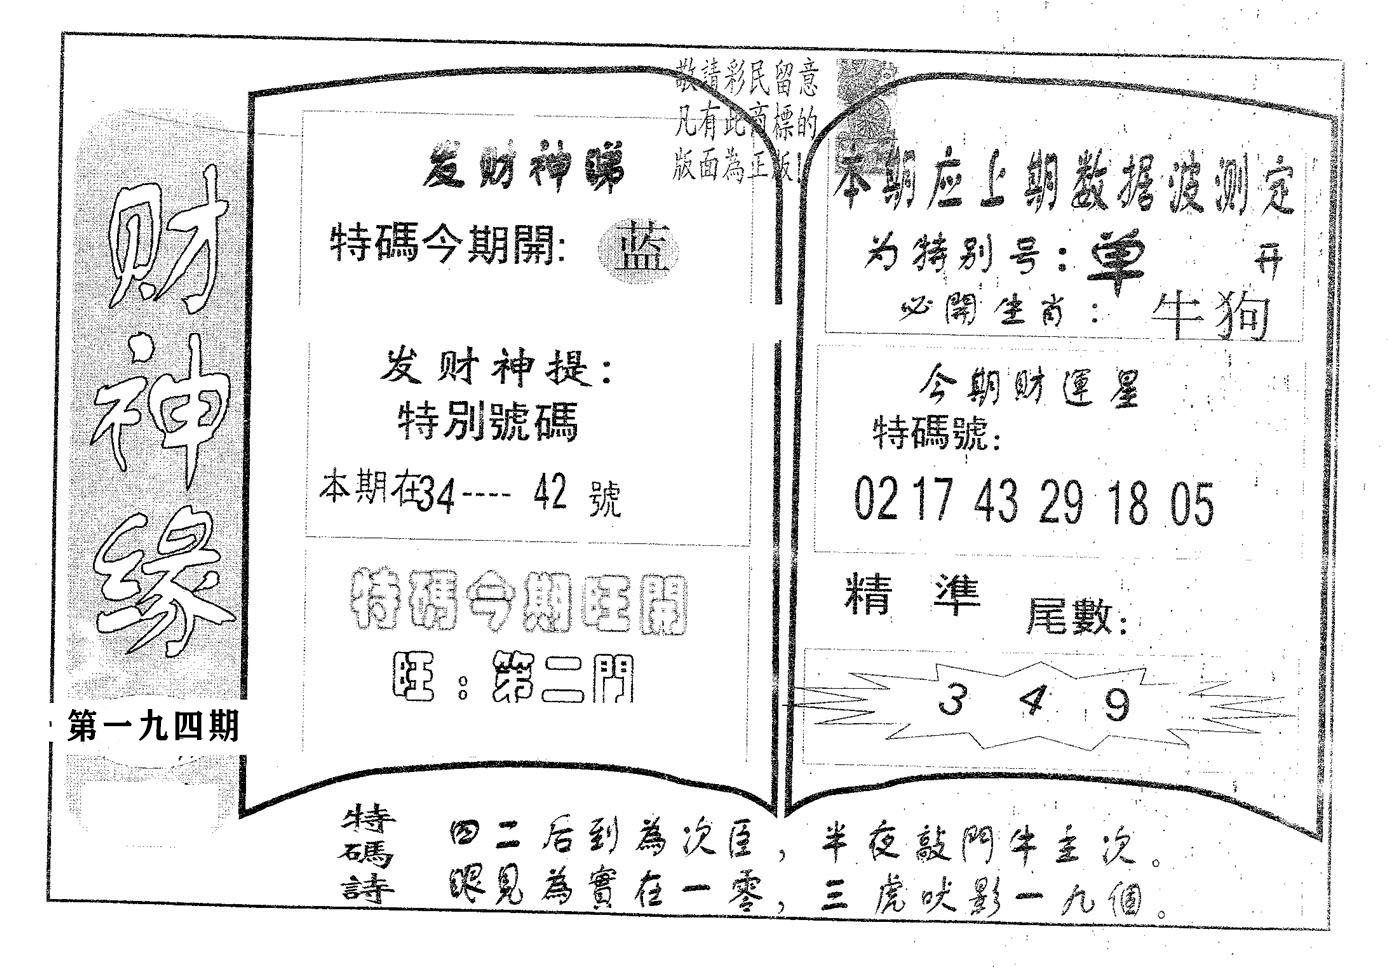 财神缘
第一九四期
敬請彩民留意
凡有此商標的
版面為正版!
发财神睇
特碼今期開: 蓝
发财神提:
特別號碼
本期在34---- 42 號
特碼今期旺開
旺: 第二門
本期应上期数据波测定
为特别号: 单 开
必開生肖: 牛狗
今期财運星
特碼號:
02 17 43 29 18 05
精準 尾數:
3 4 9
特碼詩
四二后到為次臣，半夜敲門牛主次。
眼見為實在一零，三虎吠影一九個。